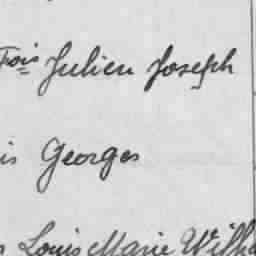 Fois Julien Joseph
is Georges
Louis Marie Wilh